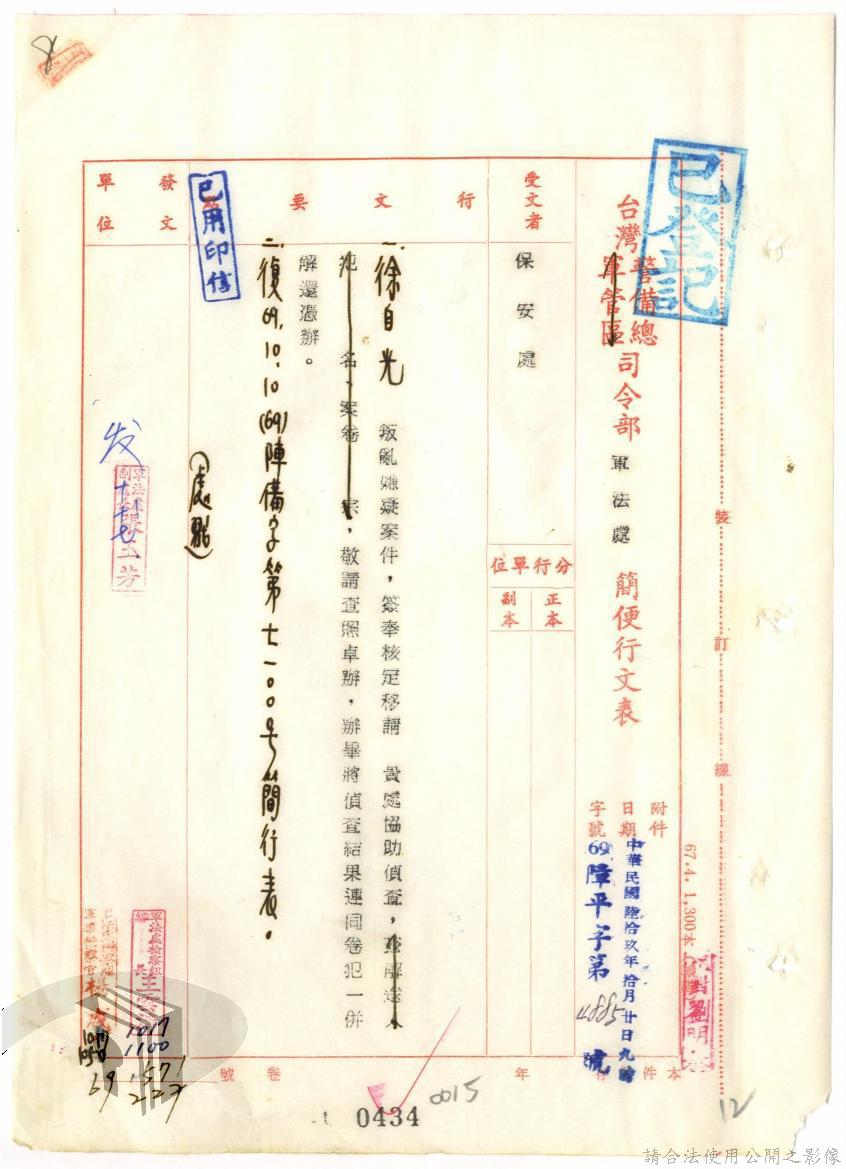 已登記
台灣警備總軍管區司令部軍法處簡便行文表
附件
日期 中華民國陸拾玖年拾月廿日九時
字號 69.障平字第4885號
受文者
保安處
分行單位
正本
副本
行文要
一、徐自光叛亂嫌疑案件,簽奉核定移請 貴處協助偵查,並解送人
犯 名、案卷 宗,敬請查照卓辦,辦畢將偵查結果連同卷犯一併
解還憑辦。
二、復69.10.10(69)陣備字第七一00号簡行表。
已用印信
發文單位
发
軍法處
副
芳
軍法處檢察組
長王
軍事檢察官林
1017
1100
69
1571
227
本件 年 卷 號
裝
訂
線
67.4.1,300本
校對劉明
0434
0015
12
8
請合法使用公開之影像